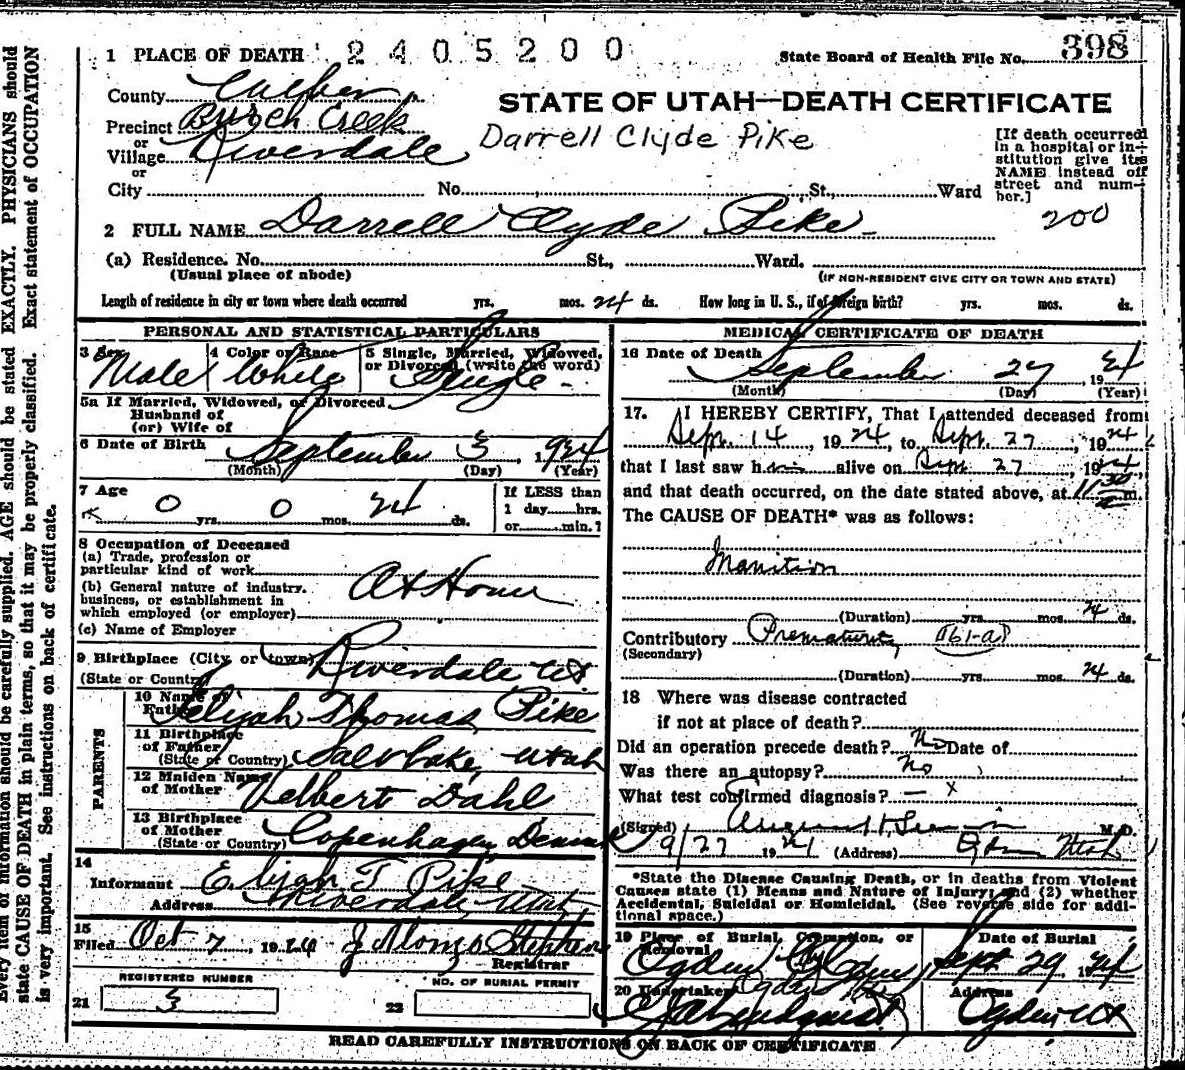 1 PLACE OF DEATH 2 4 0 5 2 0 0 State Board of Health File No. 398
County
STATE OF UTAH—DEATH CERTIFICATE
Precinct Burch Creek
Darrell Clyde Pike
or
Village Riverdale
or
City No. St., Ward
[If death occurred
in a hospital or in-
stitution give its
NAME instead of
street and num-
ber.]
200
2 FULL NAME Darrell Clyde Pike
(a) Residence. No. St., Ward.
(Usual place of abode) (IF NON-RESIDENT GIVE CITY OR TOWN AND STATE)
Length of residence in city or town where death occurred yrs. mos. 24 ds. How long in U. S., if of foreign birth? yrs. mos. ds.
PERSONAL AND STATISTICAL PARTICULARS
3 Sex 4 Color or Race 5 Single, Married, Widowed,
or Divorced (write the word)
Male White Single
5a If Married, Widowed, or Divorced
Husband of
(or) Wife of
6 Date of Birth September 3, 1924
(Month) (Day) (Year)
7 Age 0 yrs. 0 mos. 24 ds.
If LESS than
1 day hrs.
or min.?
8 Occupation of Deceased
(a) Trade, profession or
particular kind of work
At Home
(b) General nature of industry.
business, or establishment in
which employed (or employer)
(c) Name of Employer
9 Birthplace (City or town) Riverdale Ut
(State or Country)
PARENTS
10 Name of
Father Elijah Thomas Pike
11 Birthplace
of Father
(State or Country) Salt Lake, Utah
12 Maiden Name
of Mother Velbert Dahl
13 Birthplace
of Mother
(State or Country) Copenhagen Denmark
14
Informant Elijah T Pike
Address Riverdale, Utah
15
Filed Oct 7, 1924 J Alonzo Stephens
Registrar
REGISTERED NUMBER
21 3
NO. OF BURIAL PERMIT
22
MEDICAL CERTIFICATE OF DEATH
16 Date of Death September 27, 1924
(Month) (Day) (Year)
17. I HEREBY CERTIFY, That I attended deceased from
Sept. 14, 1924, to Sept. 27, 1924
that I last saw him alive on Sept. 27, 1924,
and that death occurred, on the date stated above, at 11 30 m.
The CAUSE OF DEATH* was as follows:
Inanition
(Duration) yrs. mos. 24 ds.
Contributory Prematurity (161-a)
(Secondary)
(Duration) yrs. mos. 24 ds.
18 Where was disease contracted
if not at place of death?
Did an operation precede death? No Date of
Was there an autopsy? no
What test confirmed diagnosis? — x
(Signed) M.D.
9/27 1924 (Address) Ogden Utah
*State the Disease Causing Death, or in deaths from Violent
Causes state (1) Means and Nature of Injury; and (2) whether
Accidental, Suicidal or Homicidal. (See reverse side for addi-
tional space.)
19 Place of Burial, Cremation, or
Removal
Ogden City
Date of Burial
Sept 29, 1924
20 Undertaker
Lindquist
Address
Ogden Ut
READ CAREFULLY INSTRUCTIONS ON BACK OF CERTIFICATE
Every item of information should be carefully supplied. AGE should be stated EXACTLY. PHYSICIANS should
state CAUSE OF DEATH in plain terms, so that it may be properly classified. Exact statement of OCCUPATION
is very important. See instructions on back of certificate.